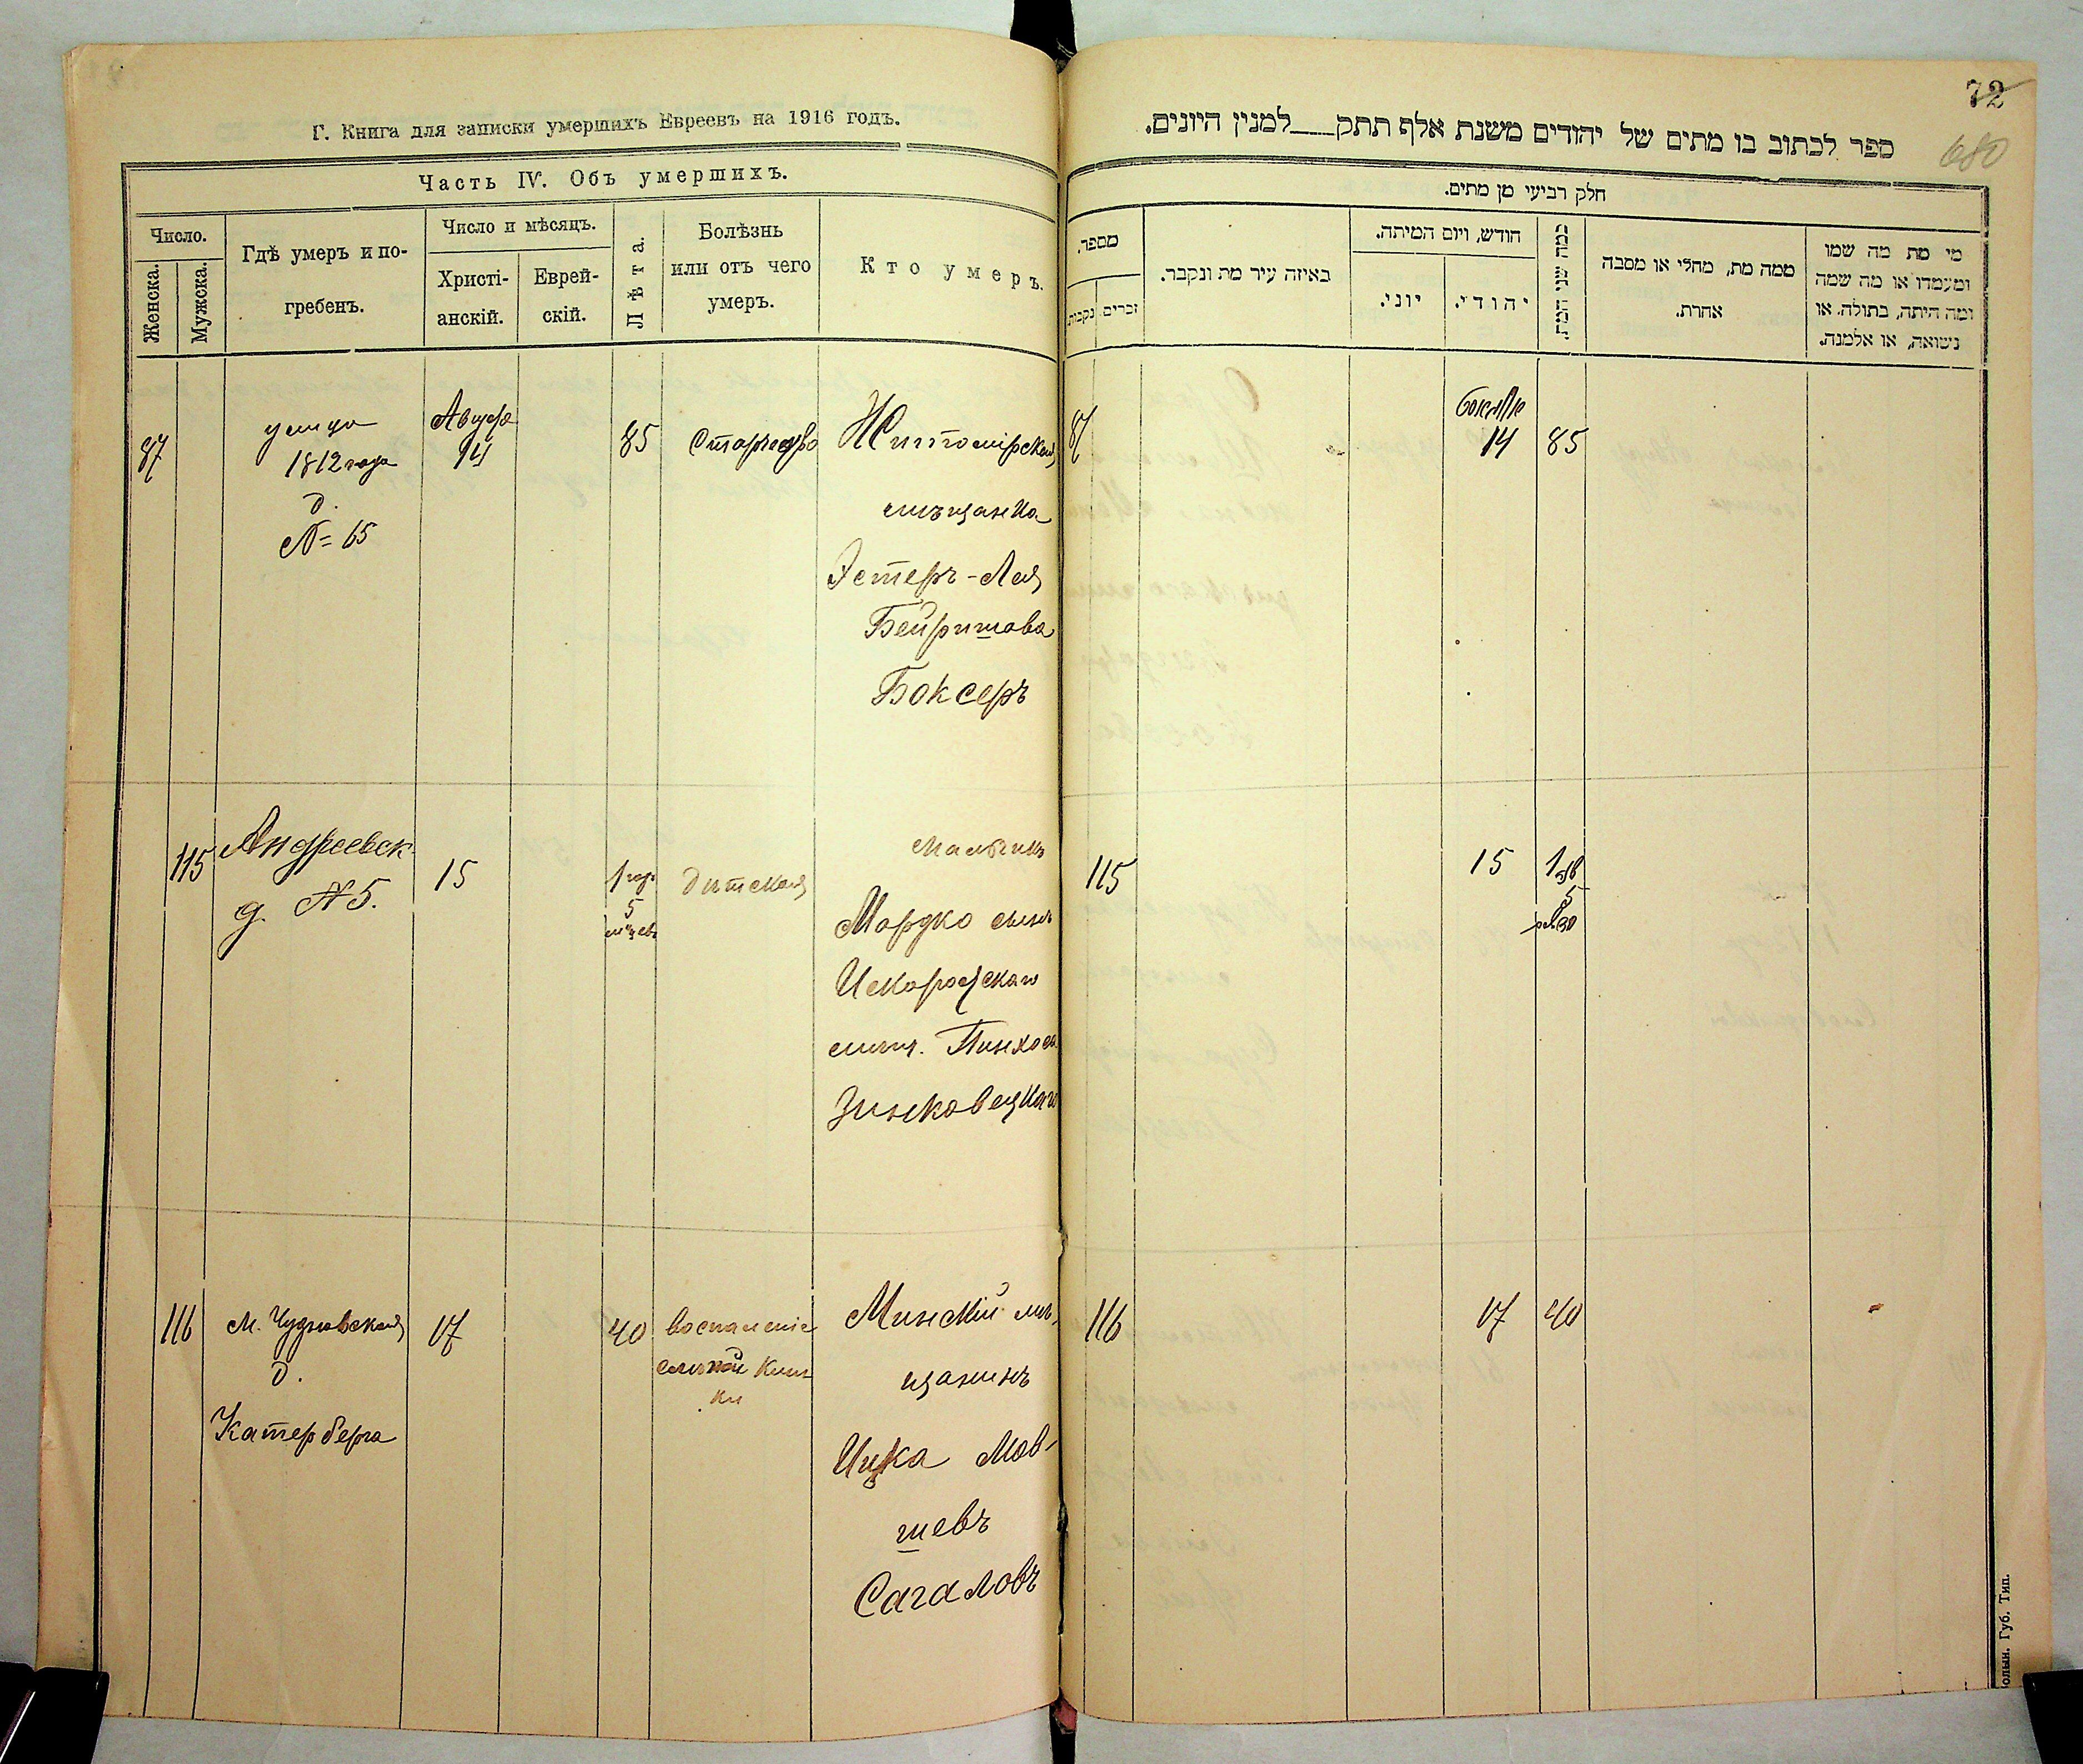 Г. Книга для записки умершихъ Евреевъ на 1916 годъ.
Часть IV. Объ умершихъ.
Число.
Женска.
Мужска.
Гдѣ умеръ и по-
гребенъ.
Число и мѣсяцъ.
Христі-
анскій.
Еврей-
скій.
Лѣта.
Болѣзнь
или отъ чего
умеръ.
Кто умеръ.
87
улица
1812 года
д.
№ 65
Август
14
85
Старчество
Житомірская
мѣщанка
Эстеръ-Лея
Бейришова
Боксеръ
115
Андреевск.
д. № 5.
15
1 год
5
мѣсяцевъ
дѣтская
Мальчикъ
Мордко сынъ
Искоростскаго
мѣщ. Пинхоса
Зиньковецкаго
116
М. Чудновская
д.
Катерберга
17
40
воспаленіе
слѣпой киш
ки
Минскій мѣ-
щанинъ
Ицка Мов-
шевъ
Сагаловъ
72
680
ספר לכתוב בו מתים של יהודים משנת אלף תתק___למנין היונים.
חלק רביעי מן מתים.
מספר.
נקבות
זכרים
באיזה עיר מת ונקבר.
חודש, ויום המיתה.
יוני.
יהודי.
כמה שני המת.
ממה מת, מחלי או מסבה
אחרת.
מי מת מה שמו
ומעמדו או מה שמה
ומה היתה, בתולה, או
נשואה, או אלמנה.
87
14
85
115
15
1
5
116
17
40
Губ. Тип.